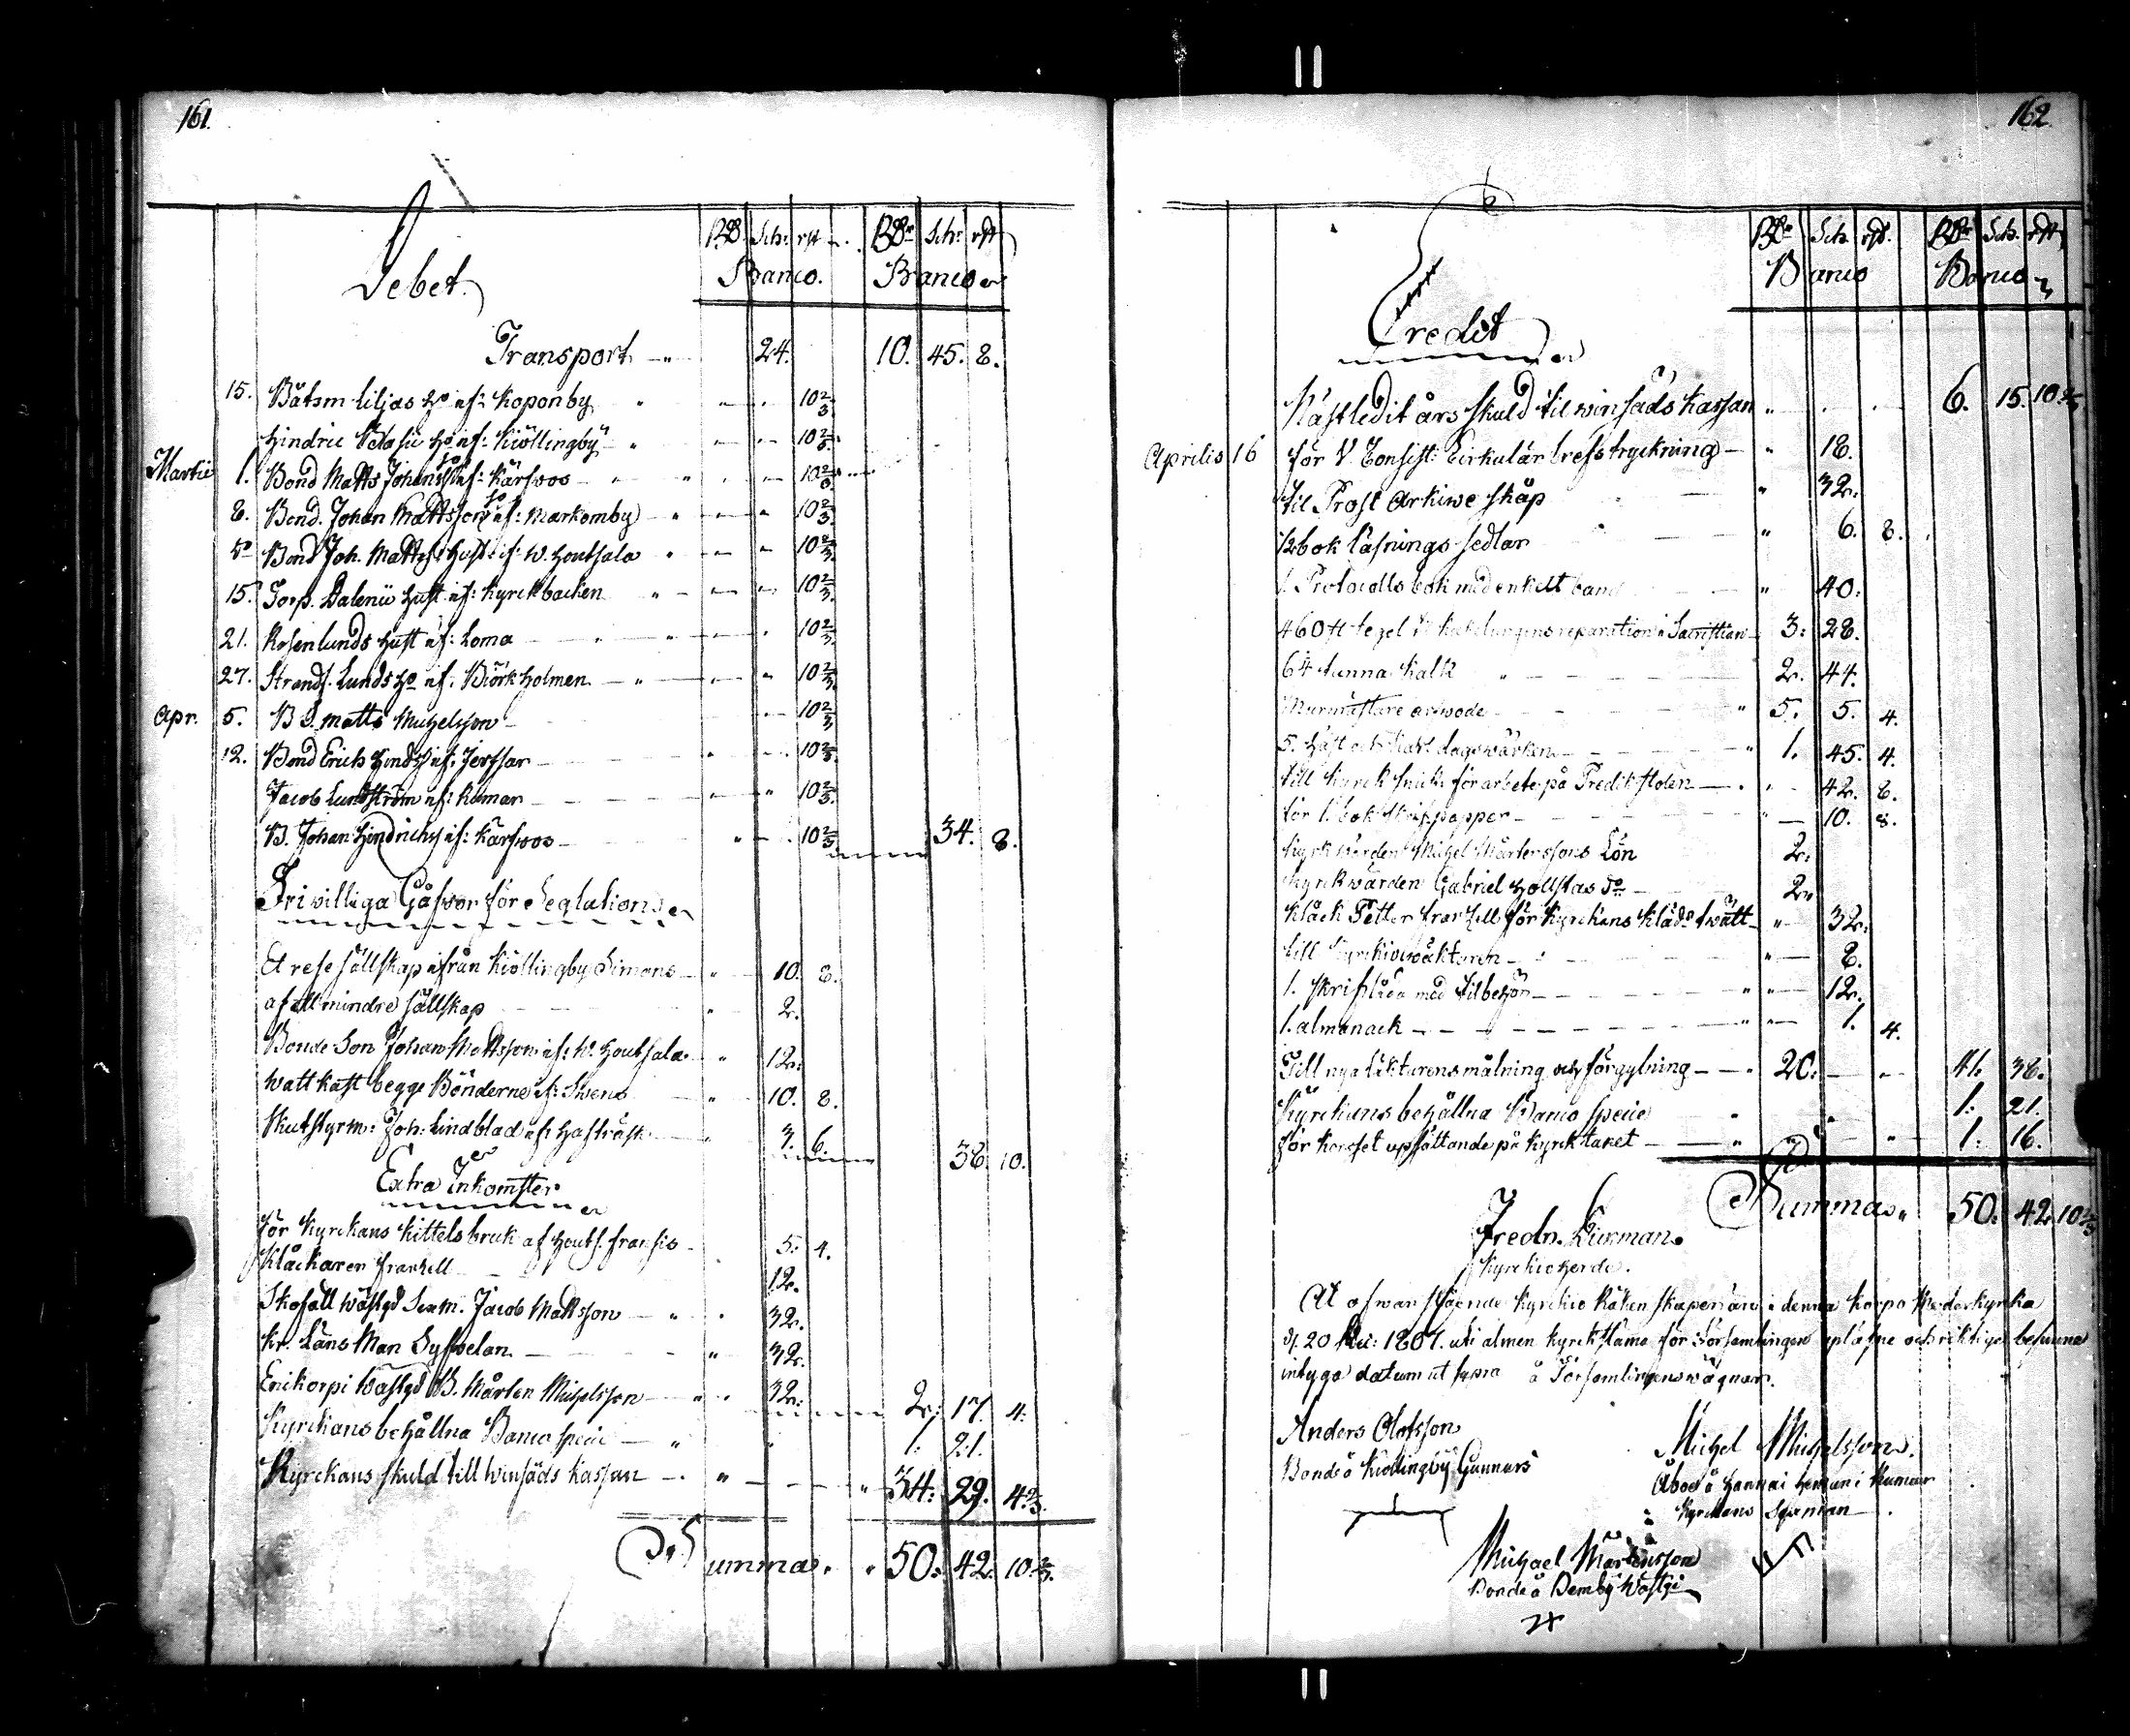 161.
Debet.
RD. Sch: rst RDr Sch: rst
Banco. Banco
Transport 24. 10. 45. 8.
15. Båtsm liljas af: Koponby 10 2/3.
Hindric af: Kiöllingby 10 2/3.
Martii 1. Bond Matts Johanss af: Kärfvos 10 2/3.
8. Bond. Johan Mattsson af: Markomby 10 2/3.
do Bond Joh. Mattss Hust: af: W. Houtsala 10 2/3.
15. Torp. Dalenii Hust af: Kyrckbacken 10 2/3.
21. Rosenlunds Hust af: Loma 10 2/3.
27. Strands. Lunds Ho af: Biörkholmen 10 2/3.
Apr. 5. B S. Matts Michelsson 10 2/3.
12. Bond Erich Hindss af: Jerssar 10 2/3.
Jacob Lundström af: Kumar 10 2/3.
B. Johan Hindrichss af: Kärfvos 10 2/3. 34. 8.
Frivilliga Gåfvor för Seglation
Et rese sällskap ifrån Kiöllingby Simons 10. 8.
af ett mindre sällskap 2.
Bonde Son Johan Mattsson af: W. Houtsala 12.
Wattkast begge Bönderne af: Swens 10. 8.
Skutstyrm: Joh: Lindblad af: 3. 6. 38. 10.
Extra Inkomster
för Kyrckans Kittels bruk af Houts. fransis 5. 4.
Klåckaren 12.
Skofäll Wästgd Sexm. Jacob Mattsson 32.
Kr. Läns Man Sylwelan 32.
Enikorpi Wästgd B. Mårten Michelsson 32. 2. 17. 4.
Kyrckans behållna Banco specie 1. 21.
Kyrckans skuld till winsäds Kassan 34. 29. 4 2/3.
Summa 50. 42. 10 2/3.
162.
Credit
RDr Sch. rst. RDr Sch. rst
Banco Banco
Nästledit års skuld til winsäds Kassan 6. 15. 10 2/3
Aprilis 16 för V. Consist: Cirkulär brefs tryckning 18.
til Prost Arkiwe skåp 32.
1/2 bok läsnings sedlar 6. 8.
1. Protocolls bok med enkelt band 40.
460 st tegel reparation i Sacristian 3. 28.
tunna Kalk 2. 44.
Murmästare arwode 5. 5. 4.
5. häst och dagswärken 1. 45. 4.
till Kyrck för arbete på Predikstolen 42. 8.
för 1. bok Skrifpapper 10. 8.
Kyrkwärden Michel Mårtenssons Lön 2.
Kyrckwärden Gabriel Hollstas do 2.
Klåck Petter för Kyrckans Kläd twätt 32.
till Kyrckiowäktaren 8.
1. skriflåda med tilbehör 12.
1. almanack 1. 4.
Till nya läkturens målning och förgylning 20. 41. 38.
Kyrckans behållna Banco specie 1. 21.
för korsset upsättande på Kyrktaket 1. 16.
Summa 50. 42. 10 2/3
Fredn. Kurman.
Kyrckioherde.
At ofwanstående Kyrckio Räkenskaper äro i denna Korpo Moderkyrka
d. 20 1807. uti almen kyrckstämma för Församlingen upläsne och riktige befunne
intyga datum ut supra å Församlingens wägnar.
Anders Olofsson
Bonde å Kiöllingby Gunnars
Michel Michelsson.
Åboe å Hannai Heman i Kumar
Kyrckans Sexman
Michael Mårtensson
Bonde å Demby Wästgd